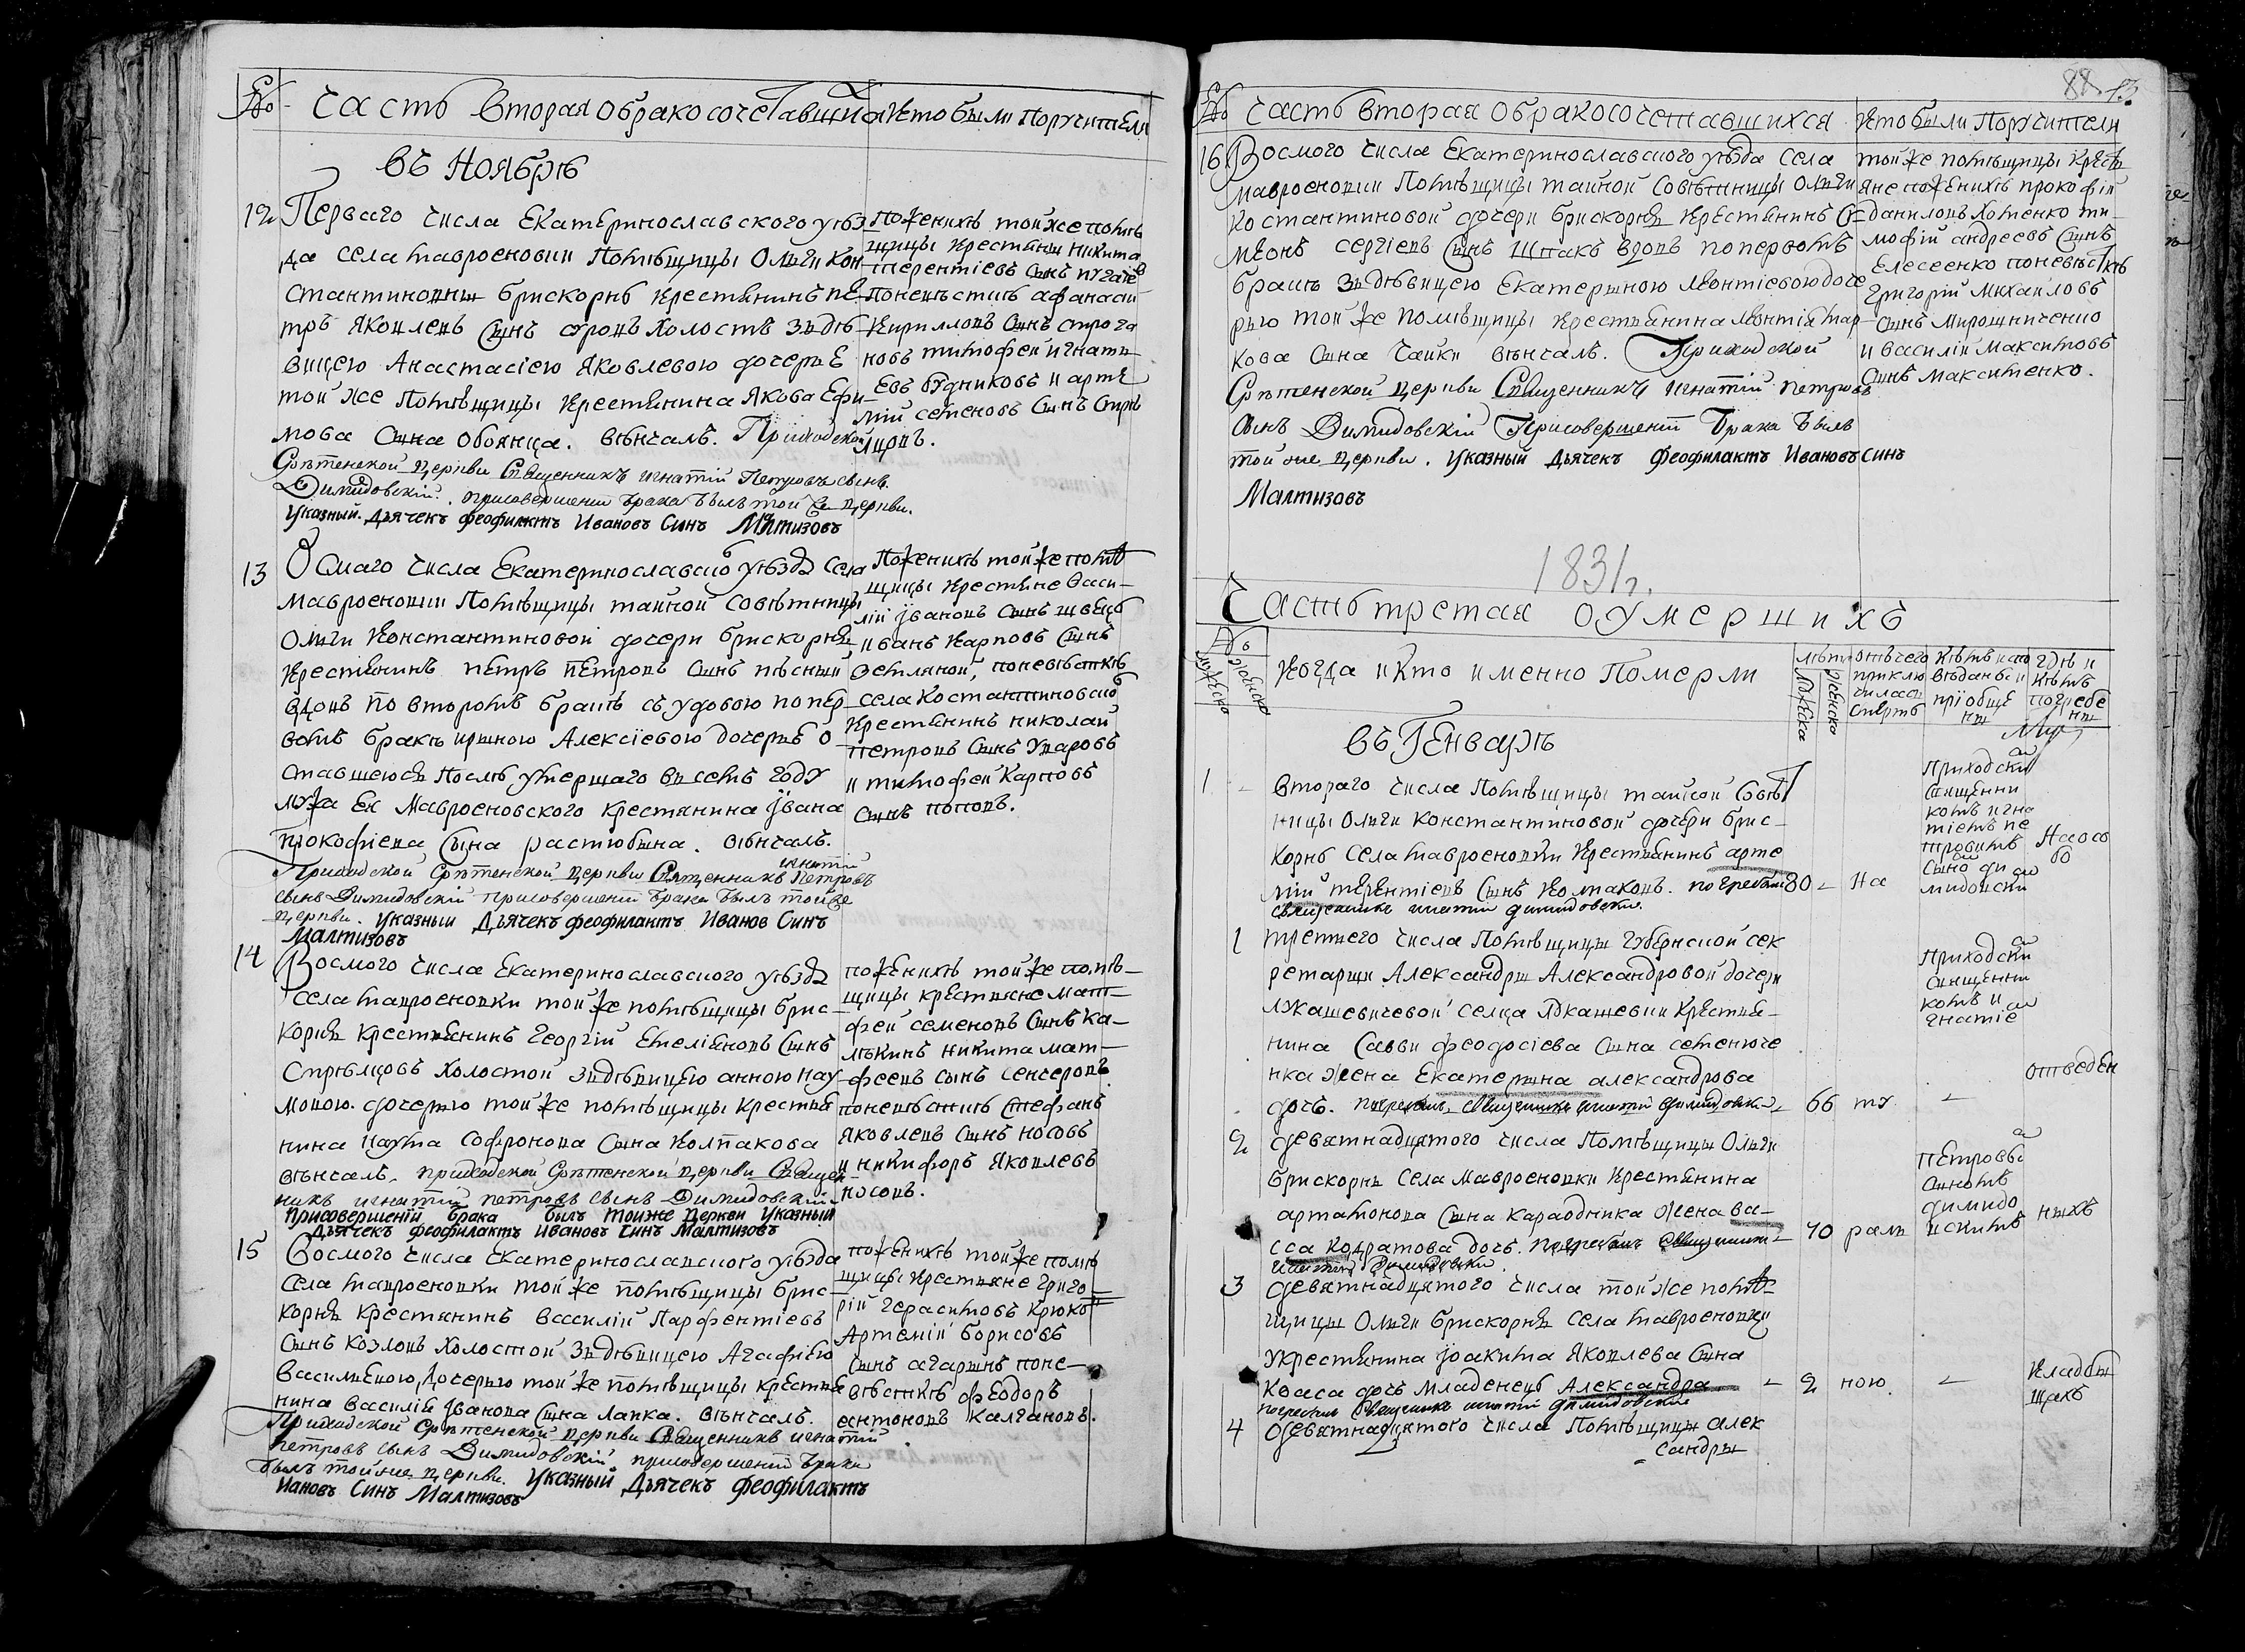 № Часть вторая обракосочетавшихся Кто были Поручители
въ Ноябрѣ
12 Перваго числа Екатеринославского уѣз
да села Мавроеновки Помѣщицы Ольги Кон
стантиновны Брискорнъ крестянинъ пе
тръ Яковлевъ Сынъ Холостъ здѣ
вицею Анастасіею Яковлевою дочерье
той же Помѣщицы Крестянина Якова Ефи
мова Сына Обоянца. вѣнчалъ. Приходской
Срѣтенской Церкви Священникъ игнатій Петровъ сынъ
Димидовскій. присовершеніи брака былъ той же церкви.
Указный Дьячекъ Феофилактъ Ивановъ Синъ Малтизовъ
Поженихѣ той же помѣ
щицы крестяни никита
терентіевъ Сынъ пугачев
Поневѣстѣ афанаси
Кирилловъ Сынъ строга
новъ тимофей игнати
евъ будниковъ и арте
мій семеновъ Сынъ Стрѣ
лцовъ.
13 Осмаго числа Екатеринославско уѣзда Села
Мавроеновки Помѣщицы тайной Совѣтницы
Ольги Константиновой дочери Брискорня
Крестянинъ Петръ Петровъ Сынъ
вдовъ по второмъ бракѣ съ удовою по пер
вомъ бракѣ ириною Алексіевою дочерье о
ставшеюся послѣ умершаго всемъ году
мужа Ея Мавроеновского крестянина Ивана
прокофіева Сына растюбина. вѣнчалъ.
Приходской Срѣтенской церкви Священникъ игнатій Петровъ
сынъ Димидовскій присовершеніи брака былъ той же
церкви. Указный Дьячекъ Феофилактъ Иванов Синъ
Малтизовъ
Поженихѣ той же помѣ
щицы Крестяне Васи
лій Ивановъ Сынъ швецъ
иванъ Карповъ Сынъ
поневѣстѣ
села Костантиновско
Крестянинъ николай
петровъ Сынъ Уваровъ
и тимофей Карповъ
Сынъ поповъ.
14 Восмого числа Екатеринославского уѣзда
села Мавроеновки той же помѣщицы Брис
корня Крестьянинъ Георгій Емеліяновъ Сынъ
Стрѣлцовъ Холостой здѣвицею анною Нау
мовою дочерью той же помѣщицы Крестья
нина Наума Софронова Сына Колпакова
вѣнчалъ. приходской Срѣтенской церкви Священ
никъ игнатій петровъ сынъ Димидовскій
Присовершеній брака былъ тойже Церкви Указный
Дьячекъ Феофилактъ Ивановъ Синъ Малтизовъ
поженихѣ той же помѣ
щицы крестьяне Мат
фей семеновъ Сынъ Ка
лѣкинъ никита мат
феевъ сынъ
поневѣстѣ Стефанъ
Яковлевъ Сынъ носовъ
и никифоръ Яковлевъ
носовъ.
15 Восмого числа Екатеринославского уѣзда
села Мавроеновки той же помѣщицы Брис
корня Крестянинъ Василій Парфентіевъ
Сынъ Козловъ Холостой здѣвицею Агафіею
Васильевою, дочерью той же помѣщицы крестья
нина Василій Иванова Сына Лапка. вѣнчалъ.
Приходской Срѣтенской церкви Священникъ игнатій
петровъ сынъ Димидовскій. присовершеніи брака
былъ той же церкви. Указный Дьячекъ Феофилактъ
Ивановъ Синъ Малтизовъ
поженихѣ той же помѣ
щицы Крестьяне Григо
рій Герасимовъ Крюко
Артемій Борисовъ
Сынъ агаринъ поне
вѣстѣ Феодоръ
антоновъ Калгановъ.
88 13
№ Часть вторая Обракосочетавшихся Кто были Поручители
16 Восмого числа Екатеринославского уѣзда села
Мавроеновки Помѣщицы тайной Совѣтницы Ольги
Костантиновой дочери Брискорня Крестянинъ Се
меонъ сергіевъ Сынъ Шпакъ вдовъ по первомъ
бракѣ здѣвицею Екатериною Леонтіевою доче
рью той же Помѣщицы Крестьянина Леонтія мар
кова Сына Чайки вѣнчалъ. Приходской
Срѣтенской церкви Священникъ игнатій петровъ
сынъ Димидовскій Присовершеніи брака былъ
той же церкви. Указный Дьячекъ Феофилактъ Ивановъ Синъ
Малтизовъ
той же помѣщицы Кресть
яне поженихѣ прокофій
даниловъ Хоменко ти
мофій андреевъ Сынъ
Елесеенко поневѣстѣ
григорій михайловъ
Сынъ Мирошниченко
и василій максимовъ
Сынъ Максименко.
1831 г.
Часть третая о умершихъ
№
Мужеска
Женска
Когда и Кто именно Померли
лѣта
Мужеска
Женска
отъ чего
приклю
чилась
смерть
Кѣмъ испо
вѣданы и
пріобще
ны
гдѣ и
кѣмъ
погребе
ны
въ Генварѣ
1 - втораго числа Помѣщицы тайной Совѣт
ницы Ольги Константиновой дочери Брис
корнъ Села Мавроеновки Крестьянинъ арте
мій терентіевъ Сынъ Колпаковъ. погребалъ 80 - На
священникъ игнатій димидовскій.
Приходски
Священни
комъ игна
тіемъ пе
тровимъ
Сыно ди
мидовски
На осо
бо
1 третего числа Помѣщицы Губернской сек
ретарши Александры Александровой дочери
Лкашевичевой Селца Лкашевки Крестья
нина Савви феодосіева Сына семеюче
нка Жена Екатерина александрова
дочь. погребалъ Священникъ игнатій димидовскій - 66 ту. -
Приходски
Священни
комъ и
гнатіе
отведен
2 девятнадцятого числа Помѣщицы Ольги
Брискорнъ Села Мавроеновки Крестянина
артамонова Сына Караодника Жена ва
сса Кодратова дочь. Погребалъ Священникъ - 70 раль
игнатій Димидовскій.
петровы
Сыномъ
димидо
вскимъ
ныхъ
3 девятнадцятого числа той же помѣ
щицы Ольги Брискорня Села Мавроеновки
Укрестянина Іоакима Яковлева Сына
Кваса дочь младенецъ Александра - 2 ною. -
погребалъ Священникъ игнатій димидовскій
Кладби
щахъ
4 девятнадцятого числа Помѣщицы алек
сандры